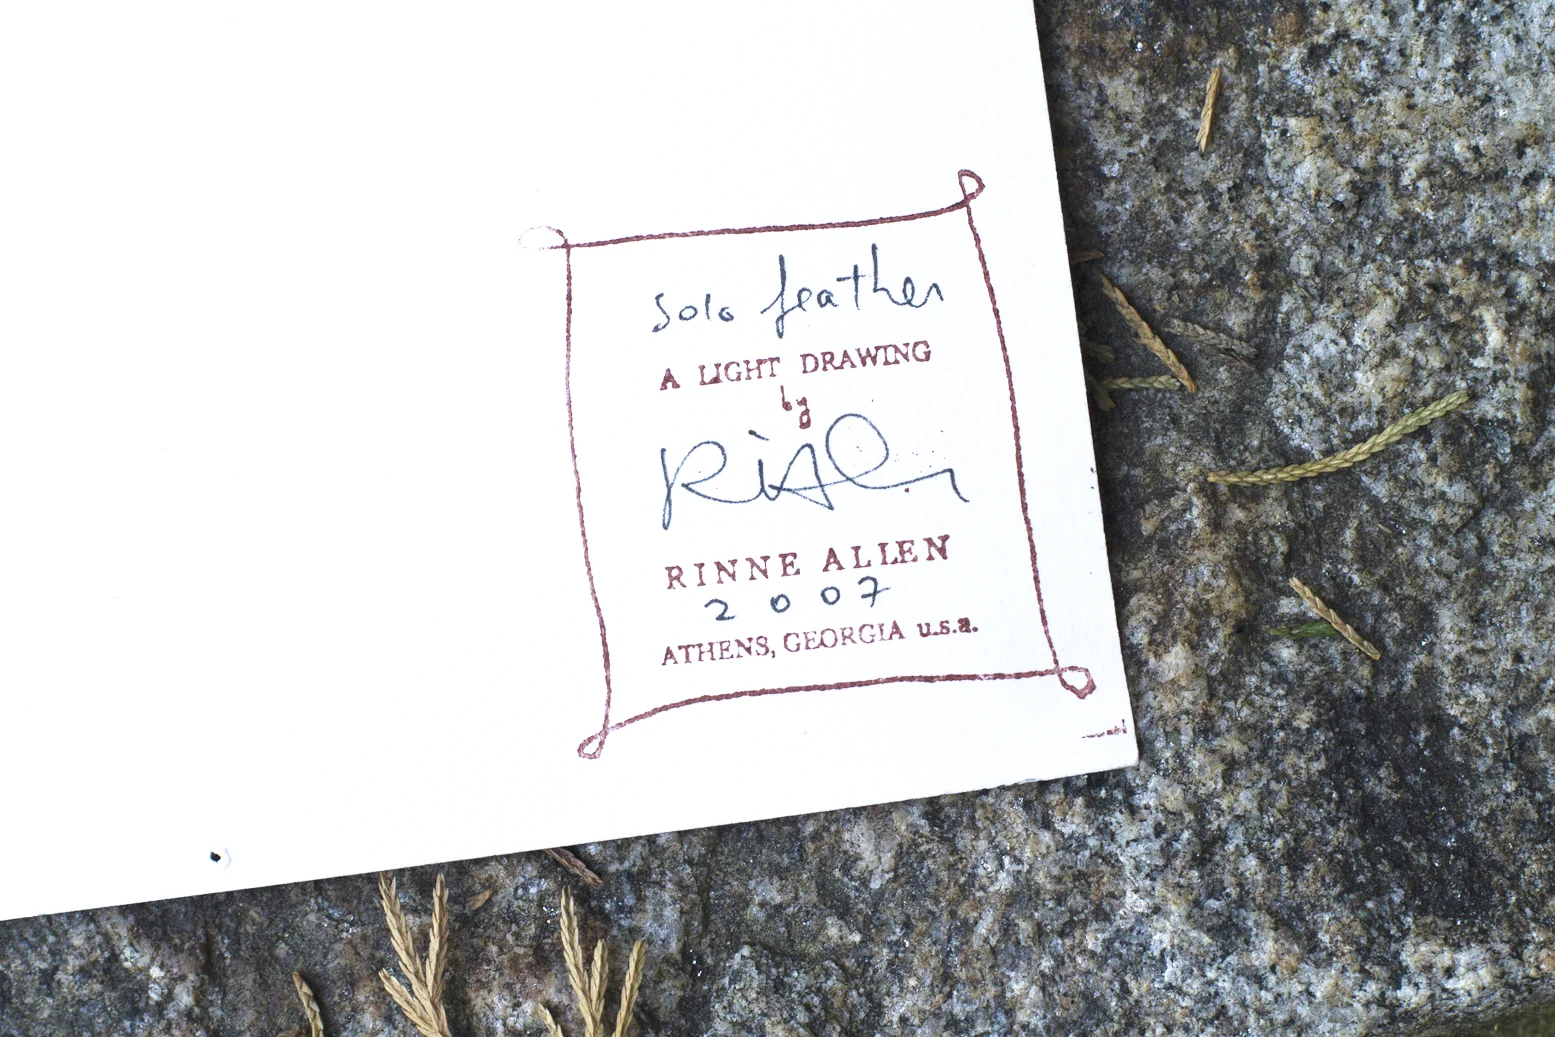 solo feather
A LIGHT DRAWING
by
RINNE ALLEN
2007
ATHENS, GEORGIA u.s.a.